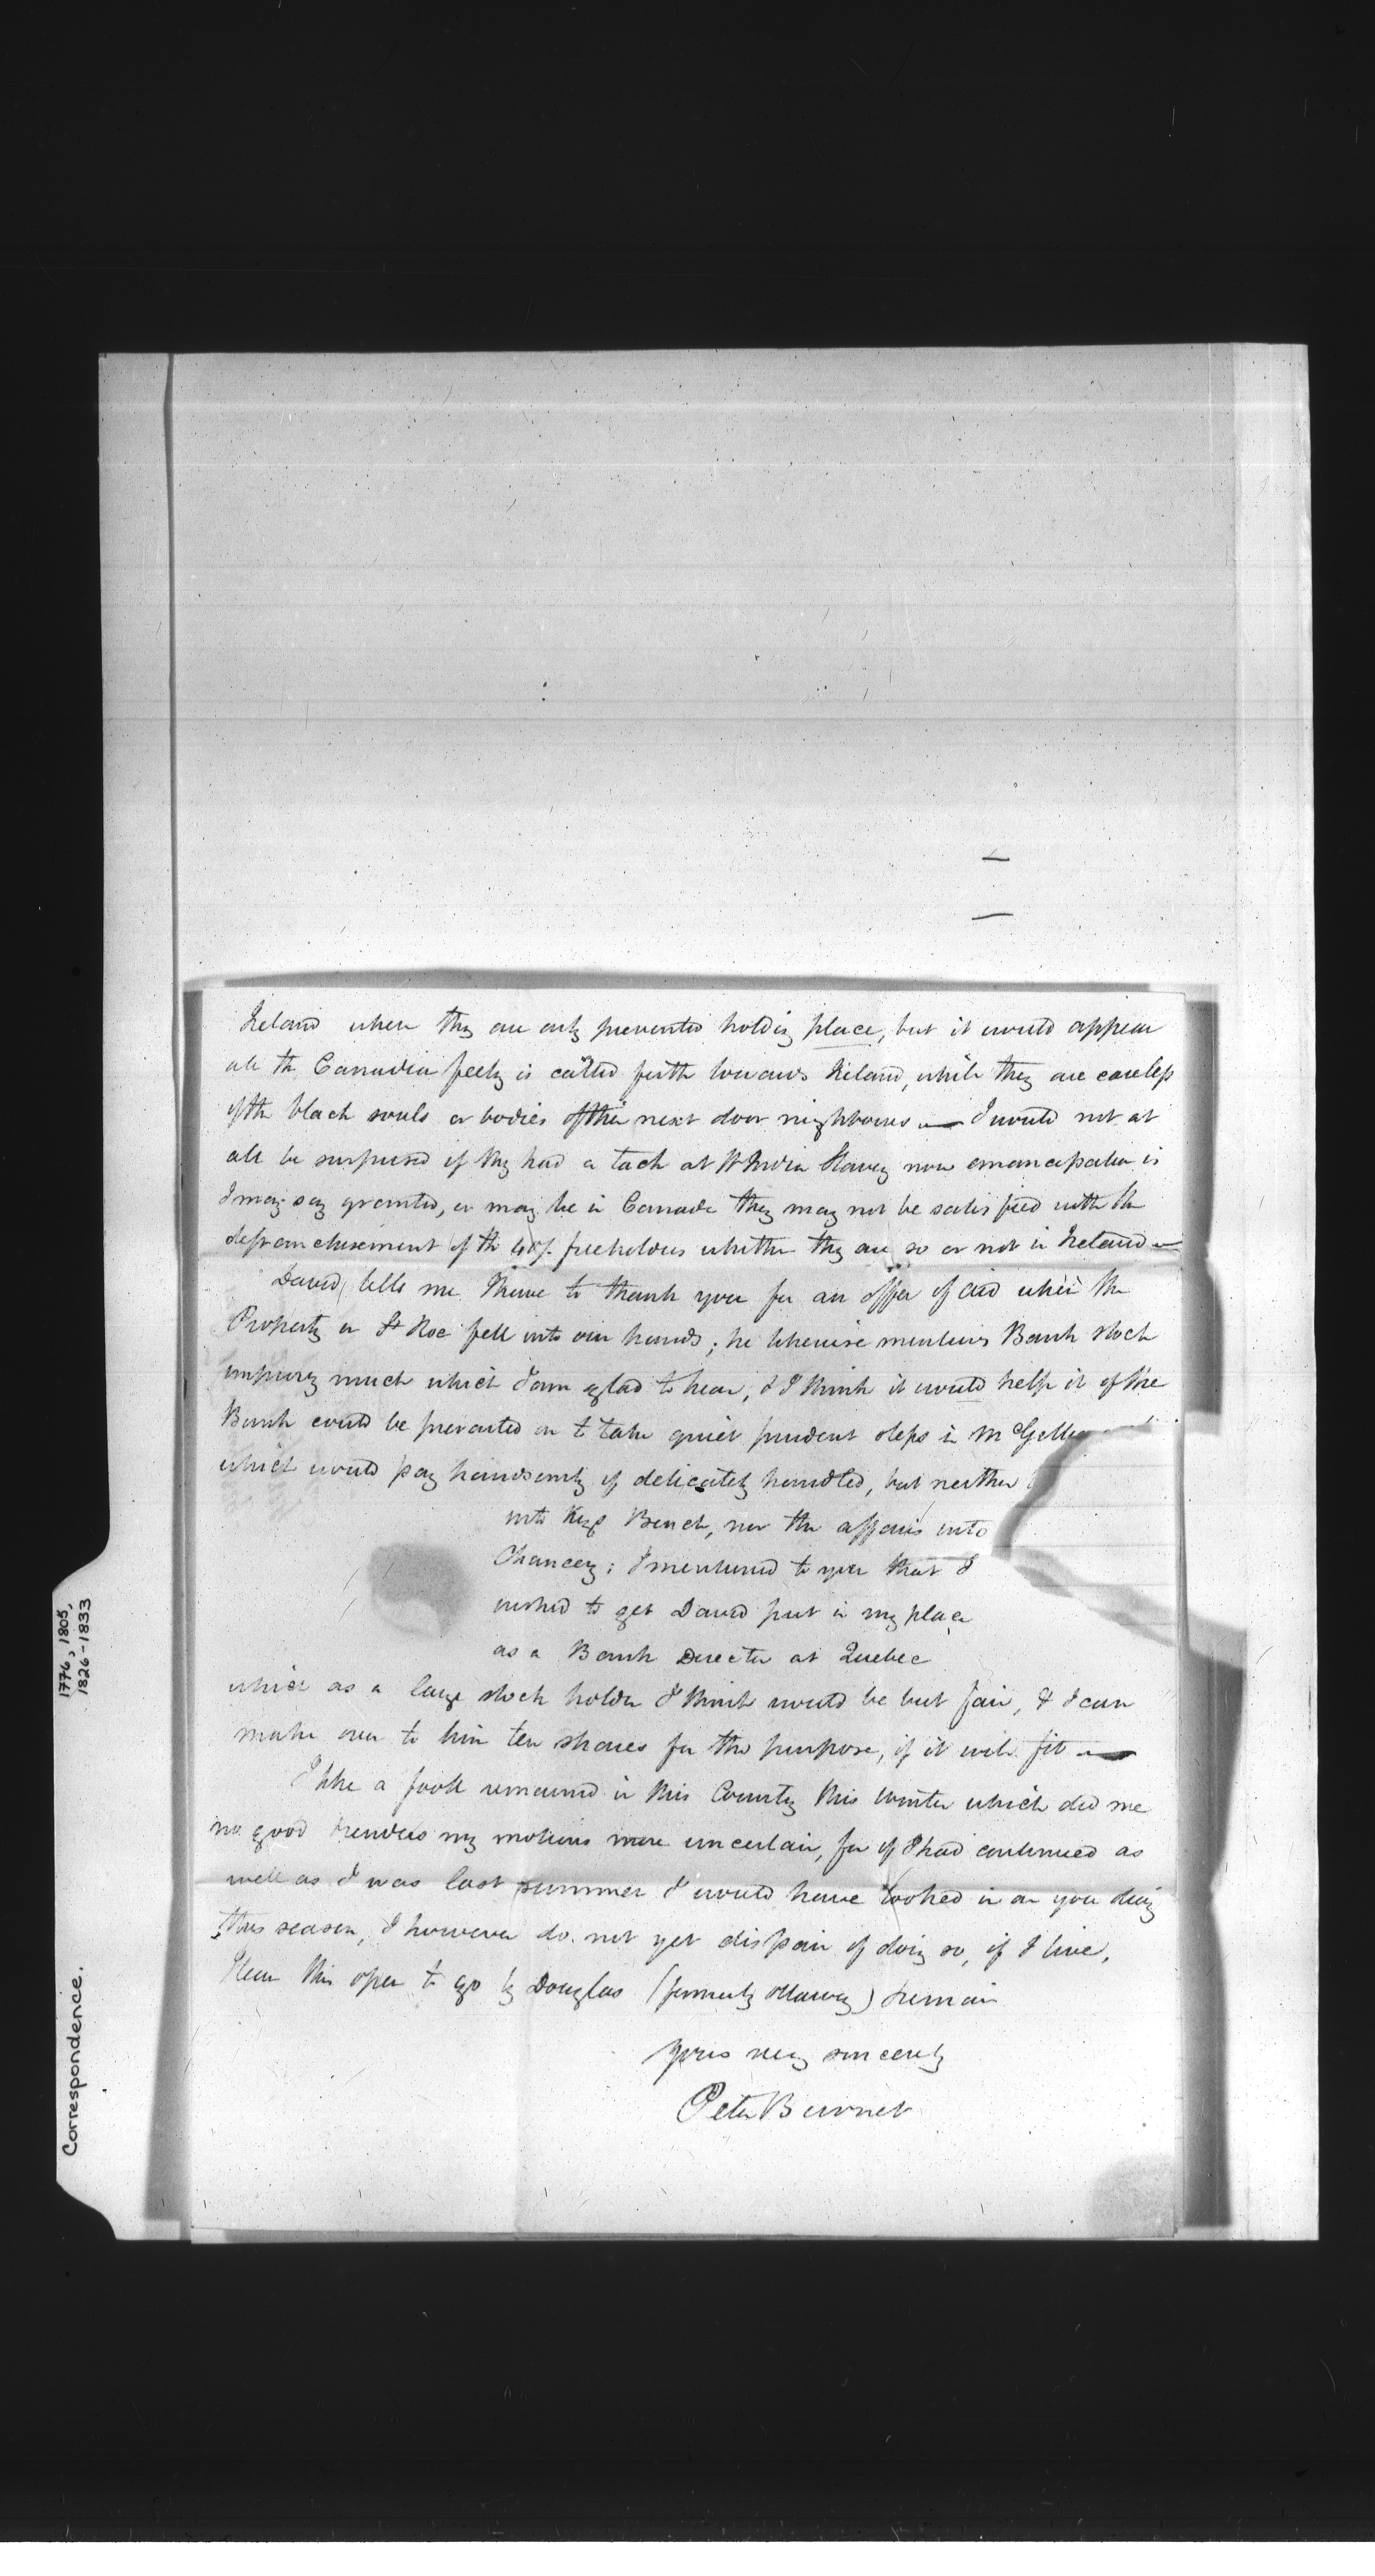 Ireland where they are only prevented holding place, but it would appear
all the Canadian feeling is called forth towards Ireland, while they are careless
of the black souls or bodies of their next door neighbours — I would not at
all be surprised if they had a tack at W India Slavery now emancipation is
I may say granted, or may be in Canada they may not be satisfied with the
disfranchisement of the 40/. freeholders whether they are so or not in Ireland —
David tells me I have to thank you for an offer of aid when the
Property in St Roc fell into our hands; he likewise mentions Bank stock
improving much which I am glad to hear, & I think it would help it if the
Bank could be prevailed on to take quiet prudent steps in McGill
which would pay handsomely if delicately handled, but neither
into Kings Bench, nor the affairs into
Chancery; I mentioned to you that I
wished to get David put in my place
as a Bank Director at Quebec
which as a large stock holder I think would be but fair, & I can
make over to him ten shares for the purpose, if it will fit —
I like a fooll remained in this Country this winter which did me
no good & renders my motions more uncertain, for if I had continued as
well as I was last summer I would have looked in on you during
this season, I however do not yet dispair of doing so, if I live,
I leave this open to go by Douglas (formerly Harvey) & remain
Yours very sincerely
Peter Burnet
Correspondence.
1776, 1805,
1826-1833